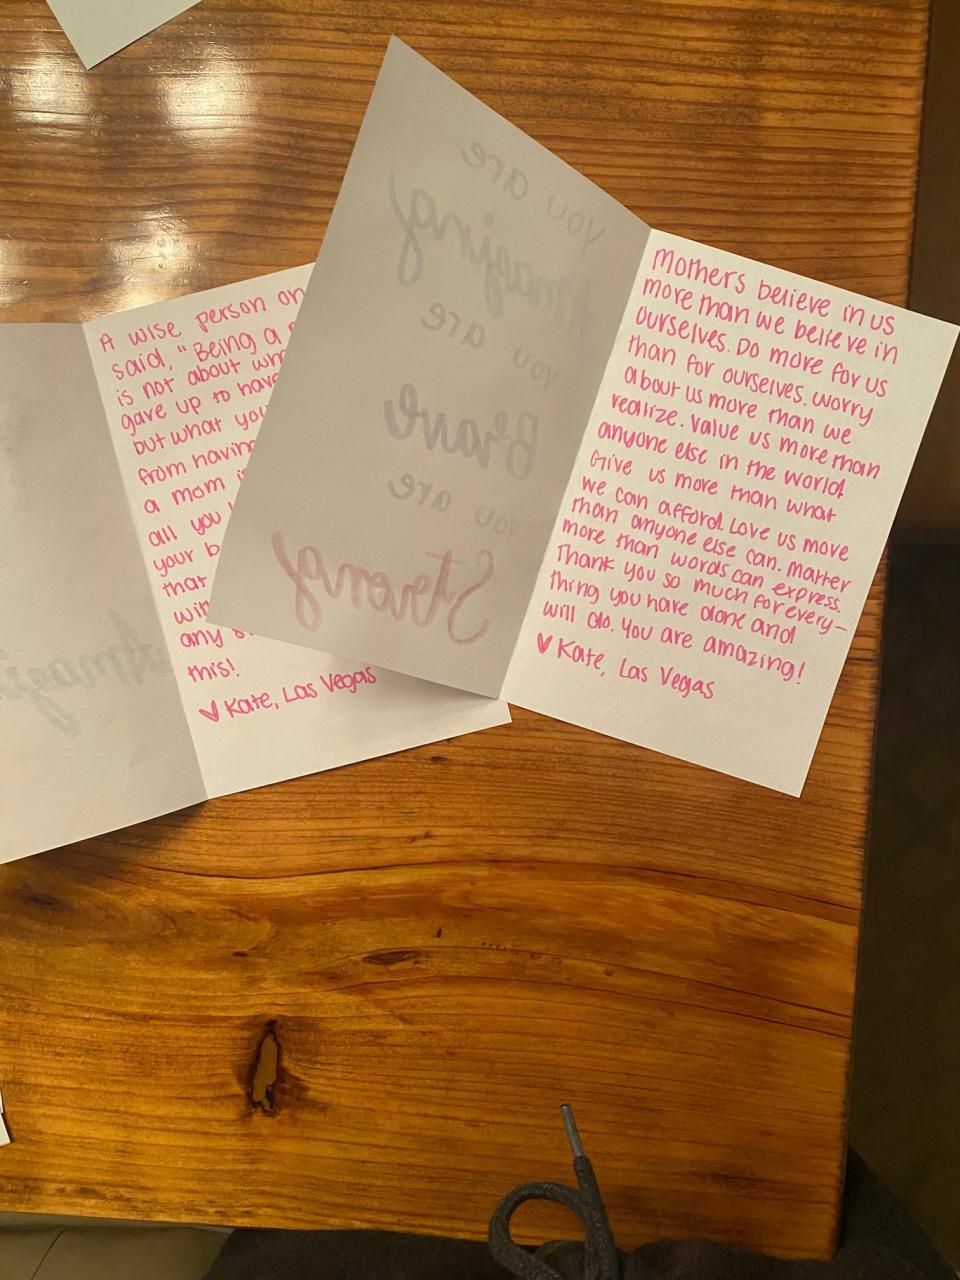 A wise person on
said, "Being a
is not about wh
gave up to have
but what you
from having
a mom i
all you
your b
that
wit
any s
this!
♥ Kate, Las Vegas
you are
Amazing
you are
Brave
you are
Strong
Mothers believe in us
more than we believe in
ourselves. Do more for us
than for ourselves. Worry
about us more than we
realize. Value us more than
anyone else in the world.
Give us more than what
we can afford. Love us more
than anyone else can. Matter
more than words can express.
Thank you so much for every-
thing you have done and
will do. You are amazing!
♥ Kate, Las Vegas